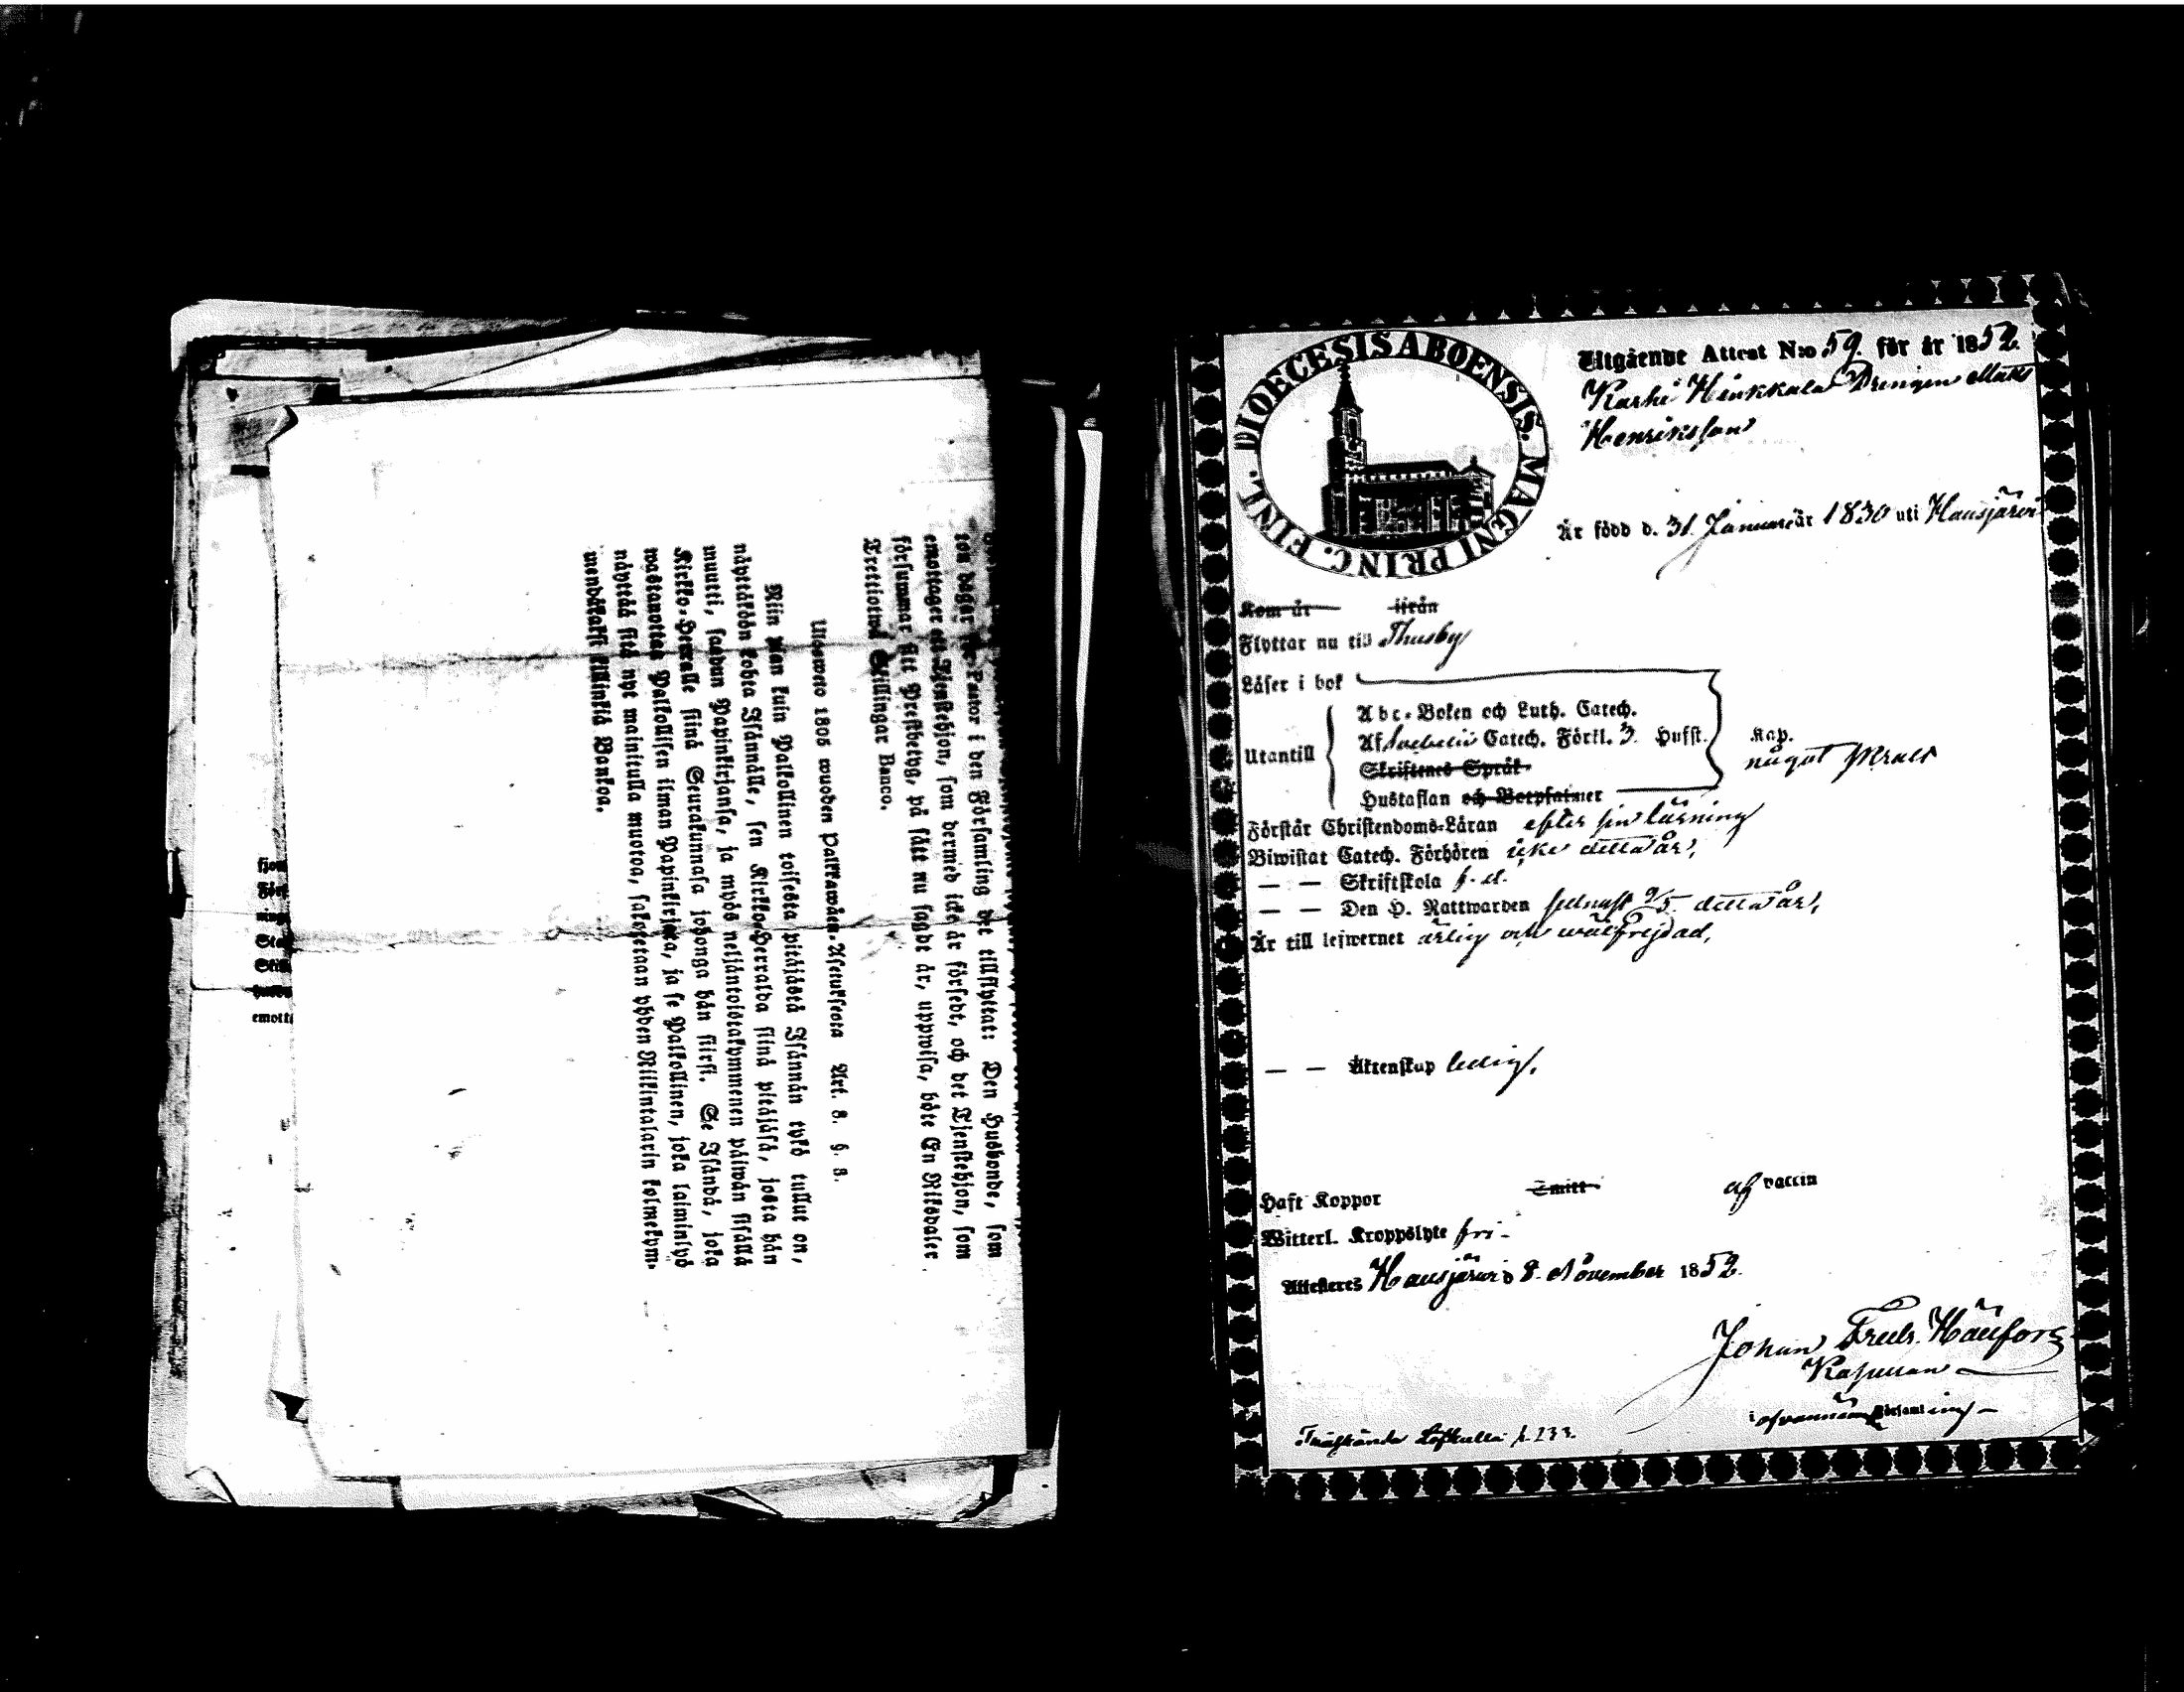 ton något för Pastor i den Församling dit tillflyttat: Den Husbonde, som
emottager ett Tjenstehjon, som dermed icke är försedt, och det Tjenstehjon, som
försummar sitt Prestbetyg, på sätt nu sagdt är, uppwisa, böte En Riksdaler
Trettiotwå Skillingar Banco.
Ulosweto 1805 wuoden Palkkawäen-Asetuksesta Art. 8. §. 8.
Niin pian kuin Palkollinen toisesta pitäjästä Isännän tykö tullut on,
näyttäköön kohta Isännälle, sen Kirkko-Herralda siinä pitäjäsä, josta hän
muutti, saadun Papinkirjansa, ja myös neljäntoistakymmenen päiwän sisällä
Kirkko-Herralle siinä Seurakunnasa johonga hän siirsi. Se Isändä, joka
wastanottaa Palkollisen ilman Papinkirjata, ja se Palkollinen, joka laiminlyö
näyttää sitä nyt mainitulla muotoa, sakotetaan yhden Riikintalarin kolmekym-
mendäkaksi killinkiä Bankoa.
emott
DIOECESIS ABOENSIS. MAGNI PRINC. FINL.
Utgående Attest N:o 59. för år 1852.
Karhi Hinkkala Drengen Mats
Henriksson
Är född d. 31 Januari år 1830 uti Hausjärvi
Kom år ifrån
Flyttar nu till Thusby
Läser i bok
Utantill
Abc-Boken och Luth. Catech.
Af Svebelii Catech. Förkl. 3. Hufst. Kap.
Skriftenes Språk något
Hustaflan och Botpsalmer
Förstår Christendoms-Läran efter sin lärning
Biwistat Catech. Förhören icke detta år,
— — Skriftskola
— — Den H. Nattwarden senast 9/5. detta år,
Är till lefwernet ärlig och wälfrejdad,
— — Äktenskap ledig.
Haft Koppor Smitt- af vaccin
Witterl. Kroppslyte fri-
Attesteras Hausjärvi d 8. November 1852.
Johan Fredr.
Kapellan
i Församling
Träskända p. 233.